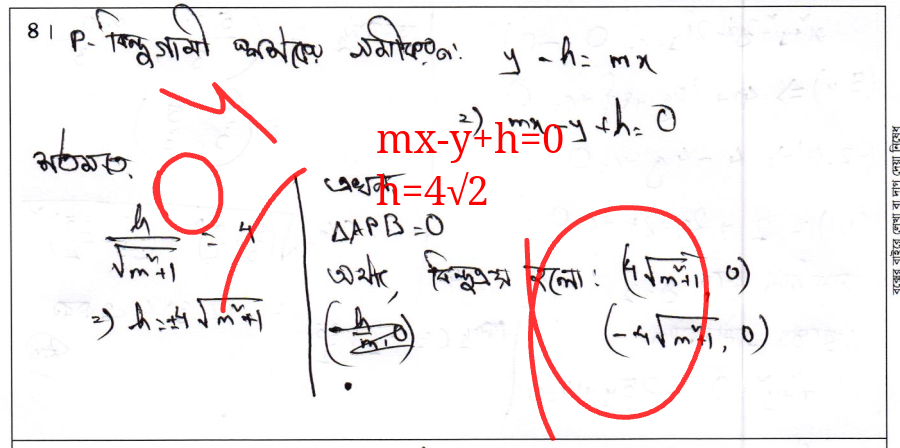 8। P- বিন্দুগামী স্পর্শকের সমীকরণ: y - h = mx
=) mx - y + h = 0
mx-y+h=0
h=4√2
শর্তমতে,
h/√(m²+1) = 4
=) h = ±4√(m²+1)
এখন
ΔAPB = 0
অর্থাৎ, বিন্দুদ্বয় হলো: (4√(m²+1), 0)
(-4√(m²+1), 0)
বক্সের বাইরে লেখা বা দাগ দেয়া নিষেধ